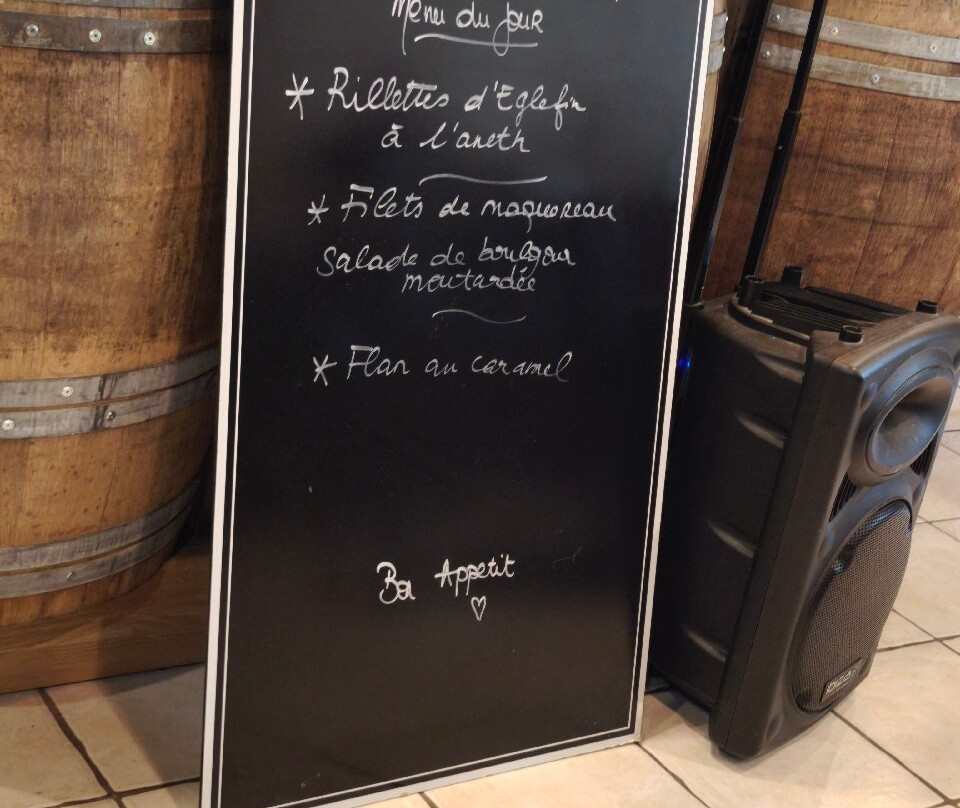 Menu du jour
* Rillettes d'Eglefin
à l'aneth
* Filets de maquereau
Salade de boulgour
moutardée
* Flan au caramel
Bon Appetit
♡
ibiza